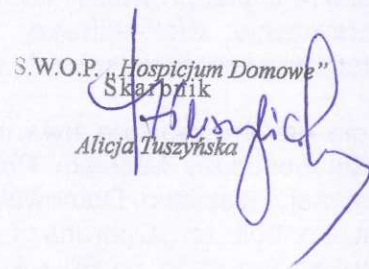 S.W.O.P. „Hospicjum Domowe”
Skarbnik
Alicja Tuszyńska